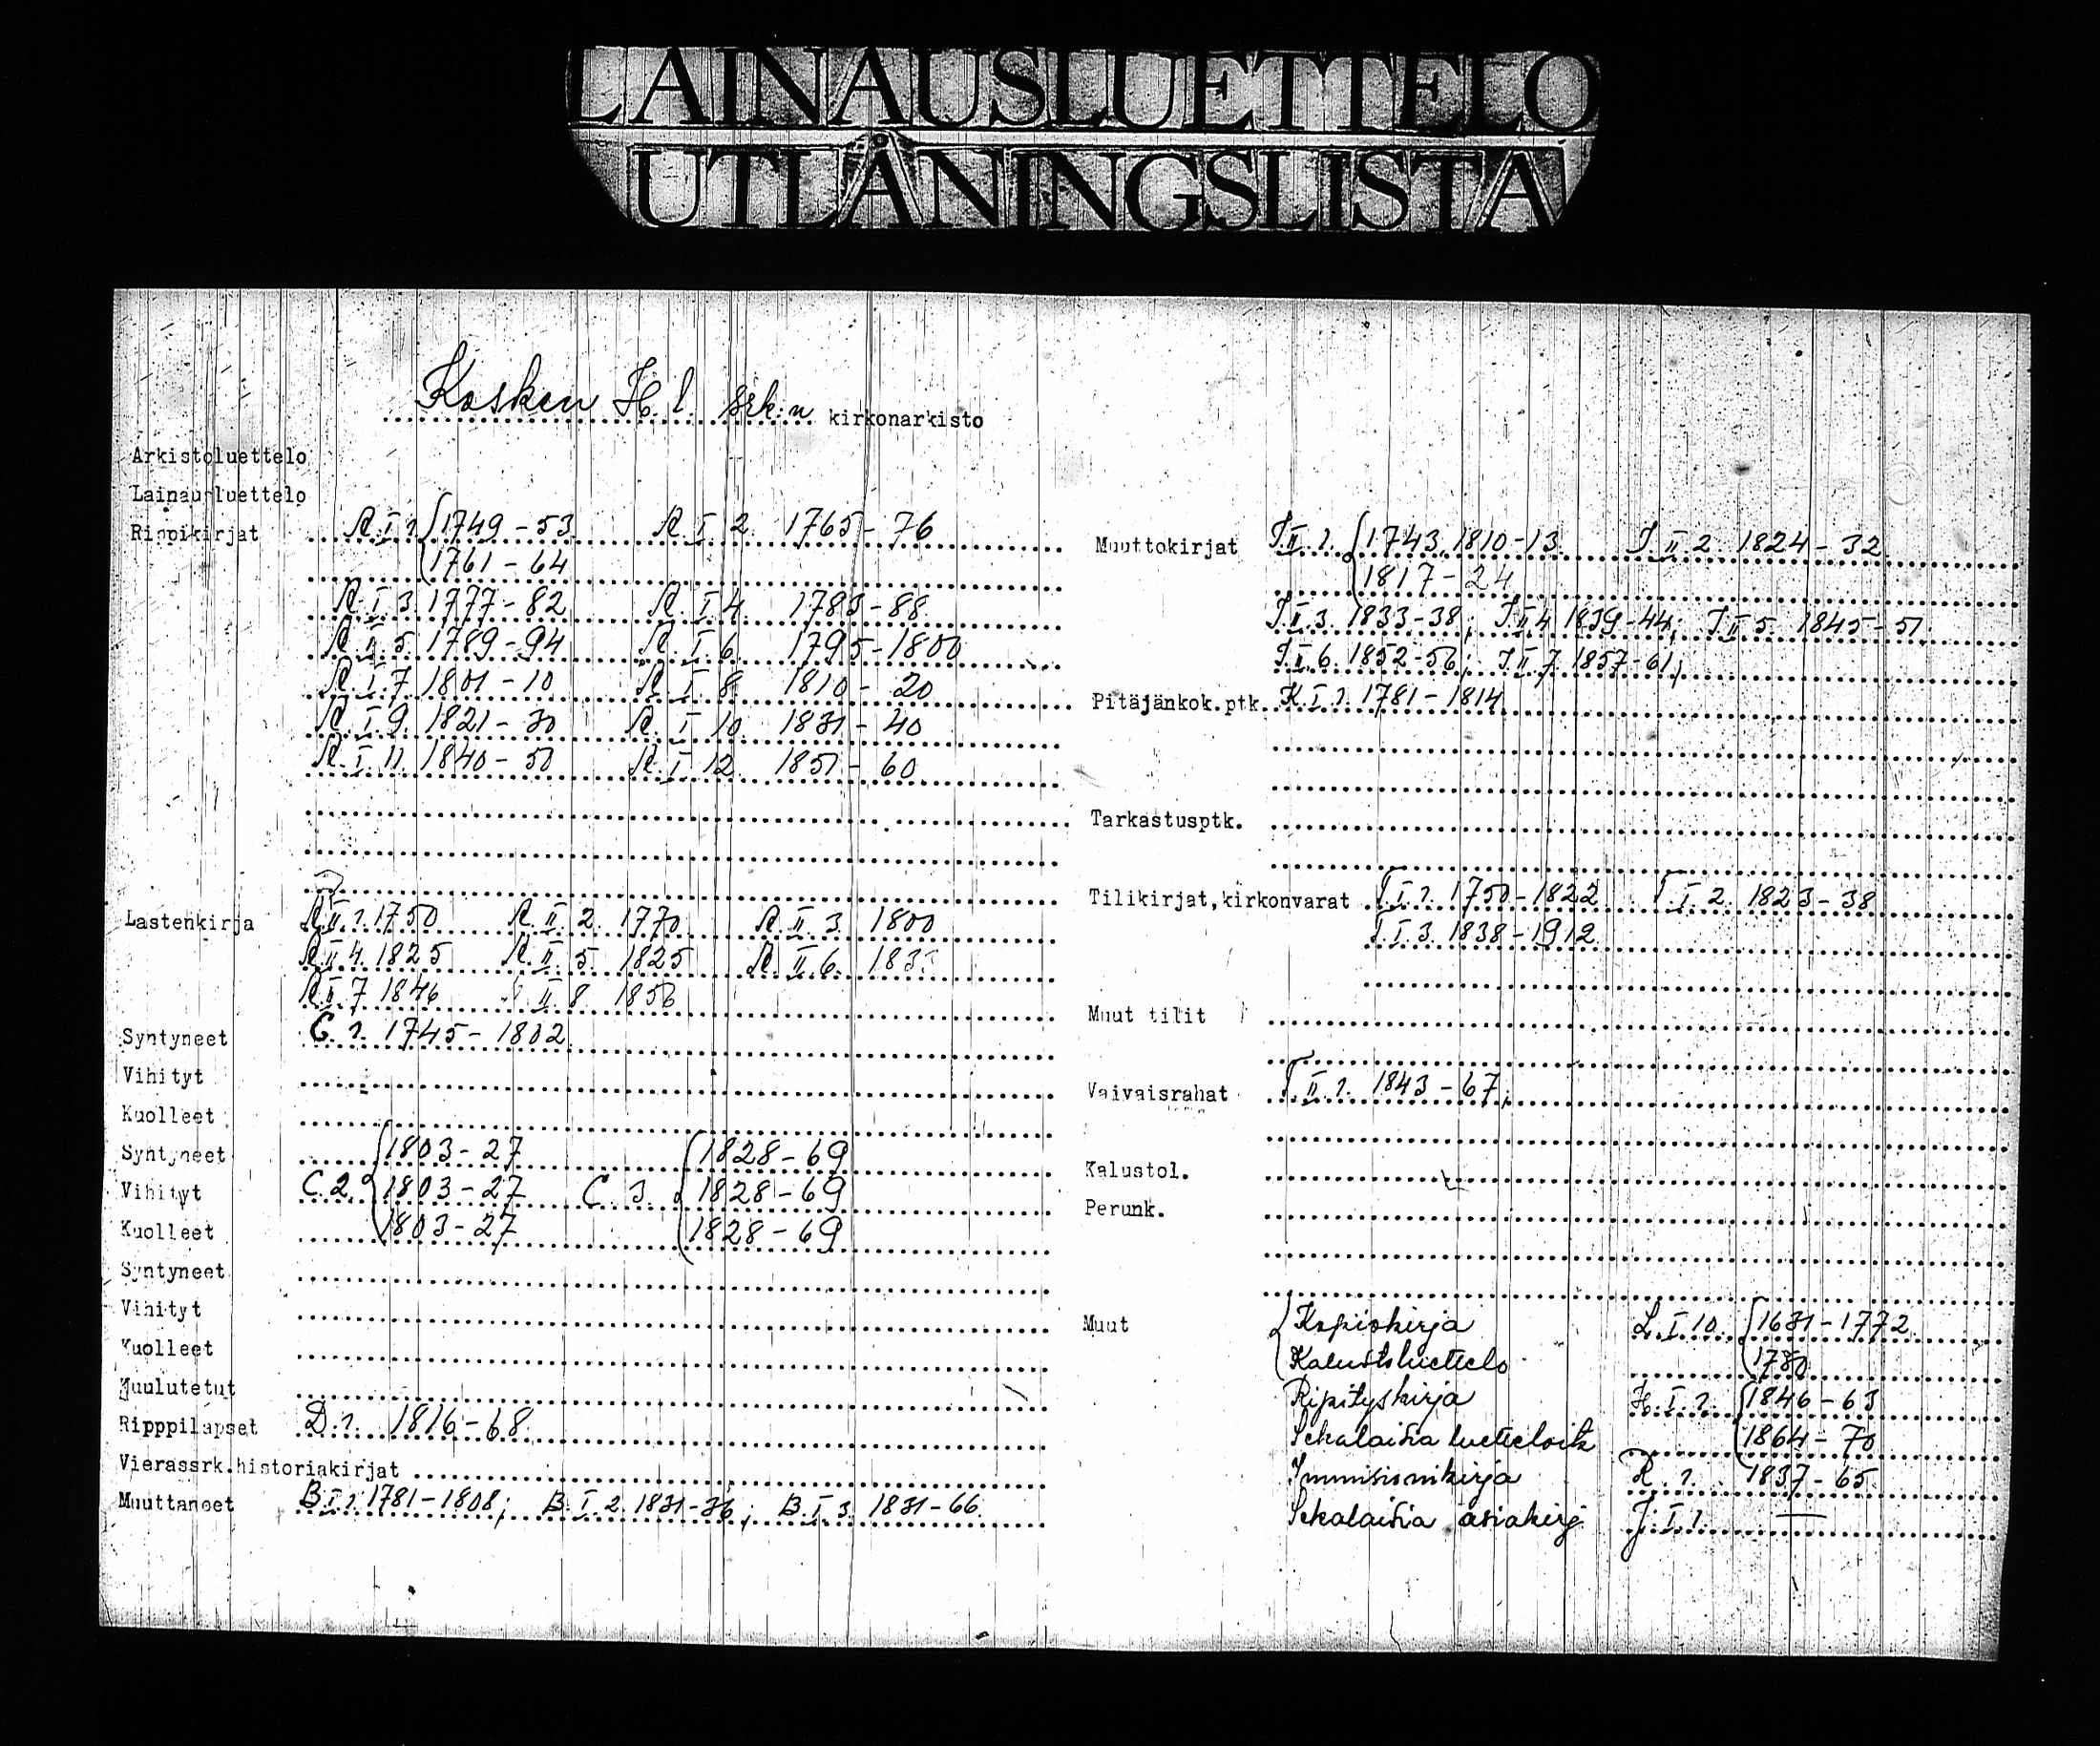 LAINAUSLUETTELO
UTLÅNINGSLISTA
Kosken H. l. srk:n kirkonarkisto
Arkistoluettelo
Lainausluettelo
Rippikirjat R. I. 1. 1749-53 R. I. 2. 1765-76
1761-64
R. I. 3. 1777-82 R. I. 4. 1783-88
R. I. 5. 1789-94 R. I. 6. 1795-1800
R. I. 7. 1801-10 R. I. 8. 1810-20
R. I. 9. 1821-30 R. I. 10. 1831-40
R. I. 11. 1840-50 R. I. 12. 1851-60
Lastenkirja R. II. 1. 1750 R. II. 2. 1770 R. II. 3. 1800
R. II. 4. 1825 R. II. 5. 1825 R. II. 6.
R. II. 7. 1846 II. 8. 1856
Syntyneet C. 1. 1745-1802
Vihityt
Kuolleet
Syntyneet 1803-27 1828-69
Vihityt C. 2. 1803-27 C. 3. 1828-69
Kuolleet 1803-27 1828-69
Syntyneet
Vihityt
Kuolleet
Kuulutetut
Ripppilapset D. 1. 1816-68.
Vierassrk.historiakirjat
Muuttaneet B. I. 1. 1781-1808; B. I. 2. 1831-36; B. I. 3. 1831-66.
Muuttokirjat J. II. 1. 1743, 1810-13 J. II. 2. 1824-32
1817-24
J. II. 3. 1833-38; J. II. 4. 1839-44; J. II. 5. 1845-51
J. II. 6. 1852-56; J. II. 7. 1857-61;
Pitäjänkok.ptk. K. I. 1. 1781-1814
Tarkastusptk.
Tilikirjat,kirkonvarat T. I. 1. 1750-1822 T. I. 2. 1823-38
T. I. 3. 1838-1912
Muut tilit
Vaivaisrahat T. II. 1. 1843-67;
Kalustol.
Perunk.
Muut Kopiokirja L. I. 10. 1681-1772
Kalustoluettelo 1780
Ripityskirja H. I. 1. 1846-63
Sekalaisia luetteloita 1864-70
Immisionikirja R. 1. 1837-65
Sekalaisia asiakirj J. I. 1. —